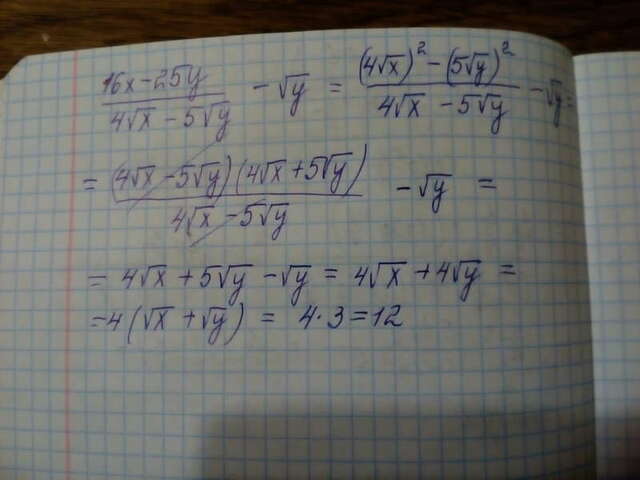 (16x - 25y)/(4√x - 5√y) - √y = ((4√x)² - (5√y)²)/(4√x - 5√y) - √y =
= ((4√x - 5√y)(4√x + 5√y))/(4√x - 5√y) - √y =
= 4√x + 5√y - √y = 4√x + 4√y =
= 4(√x + √y) = 4·3 = 12